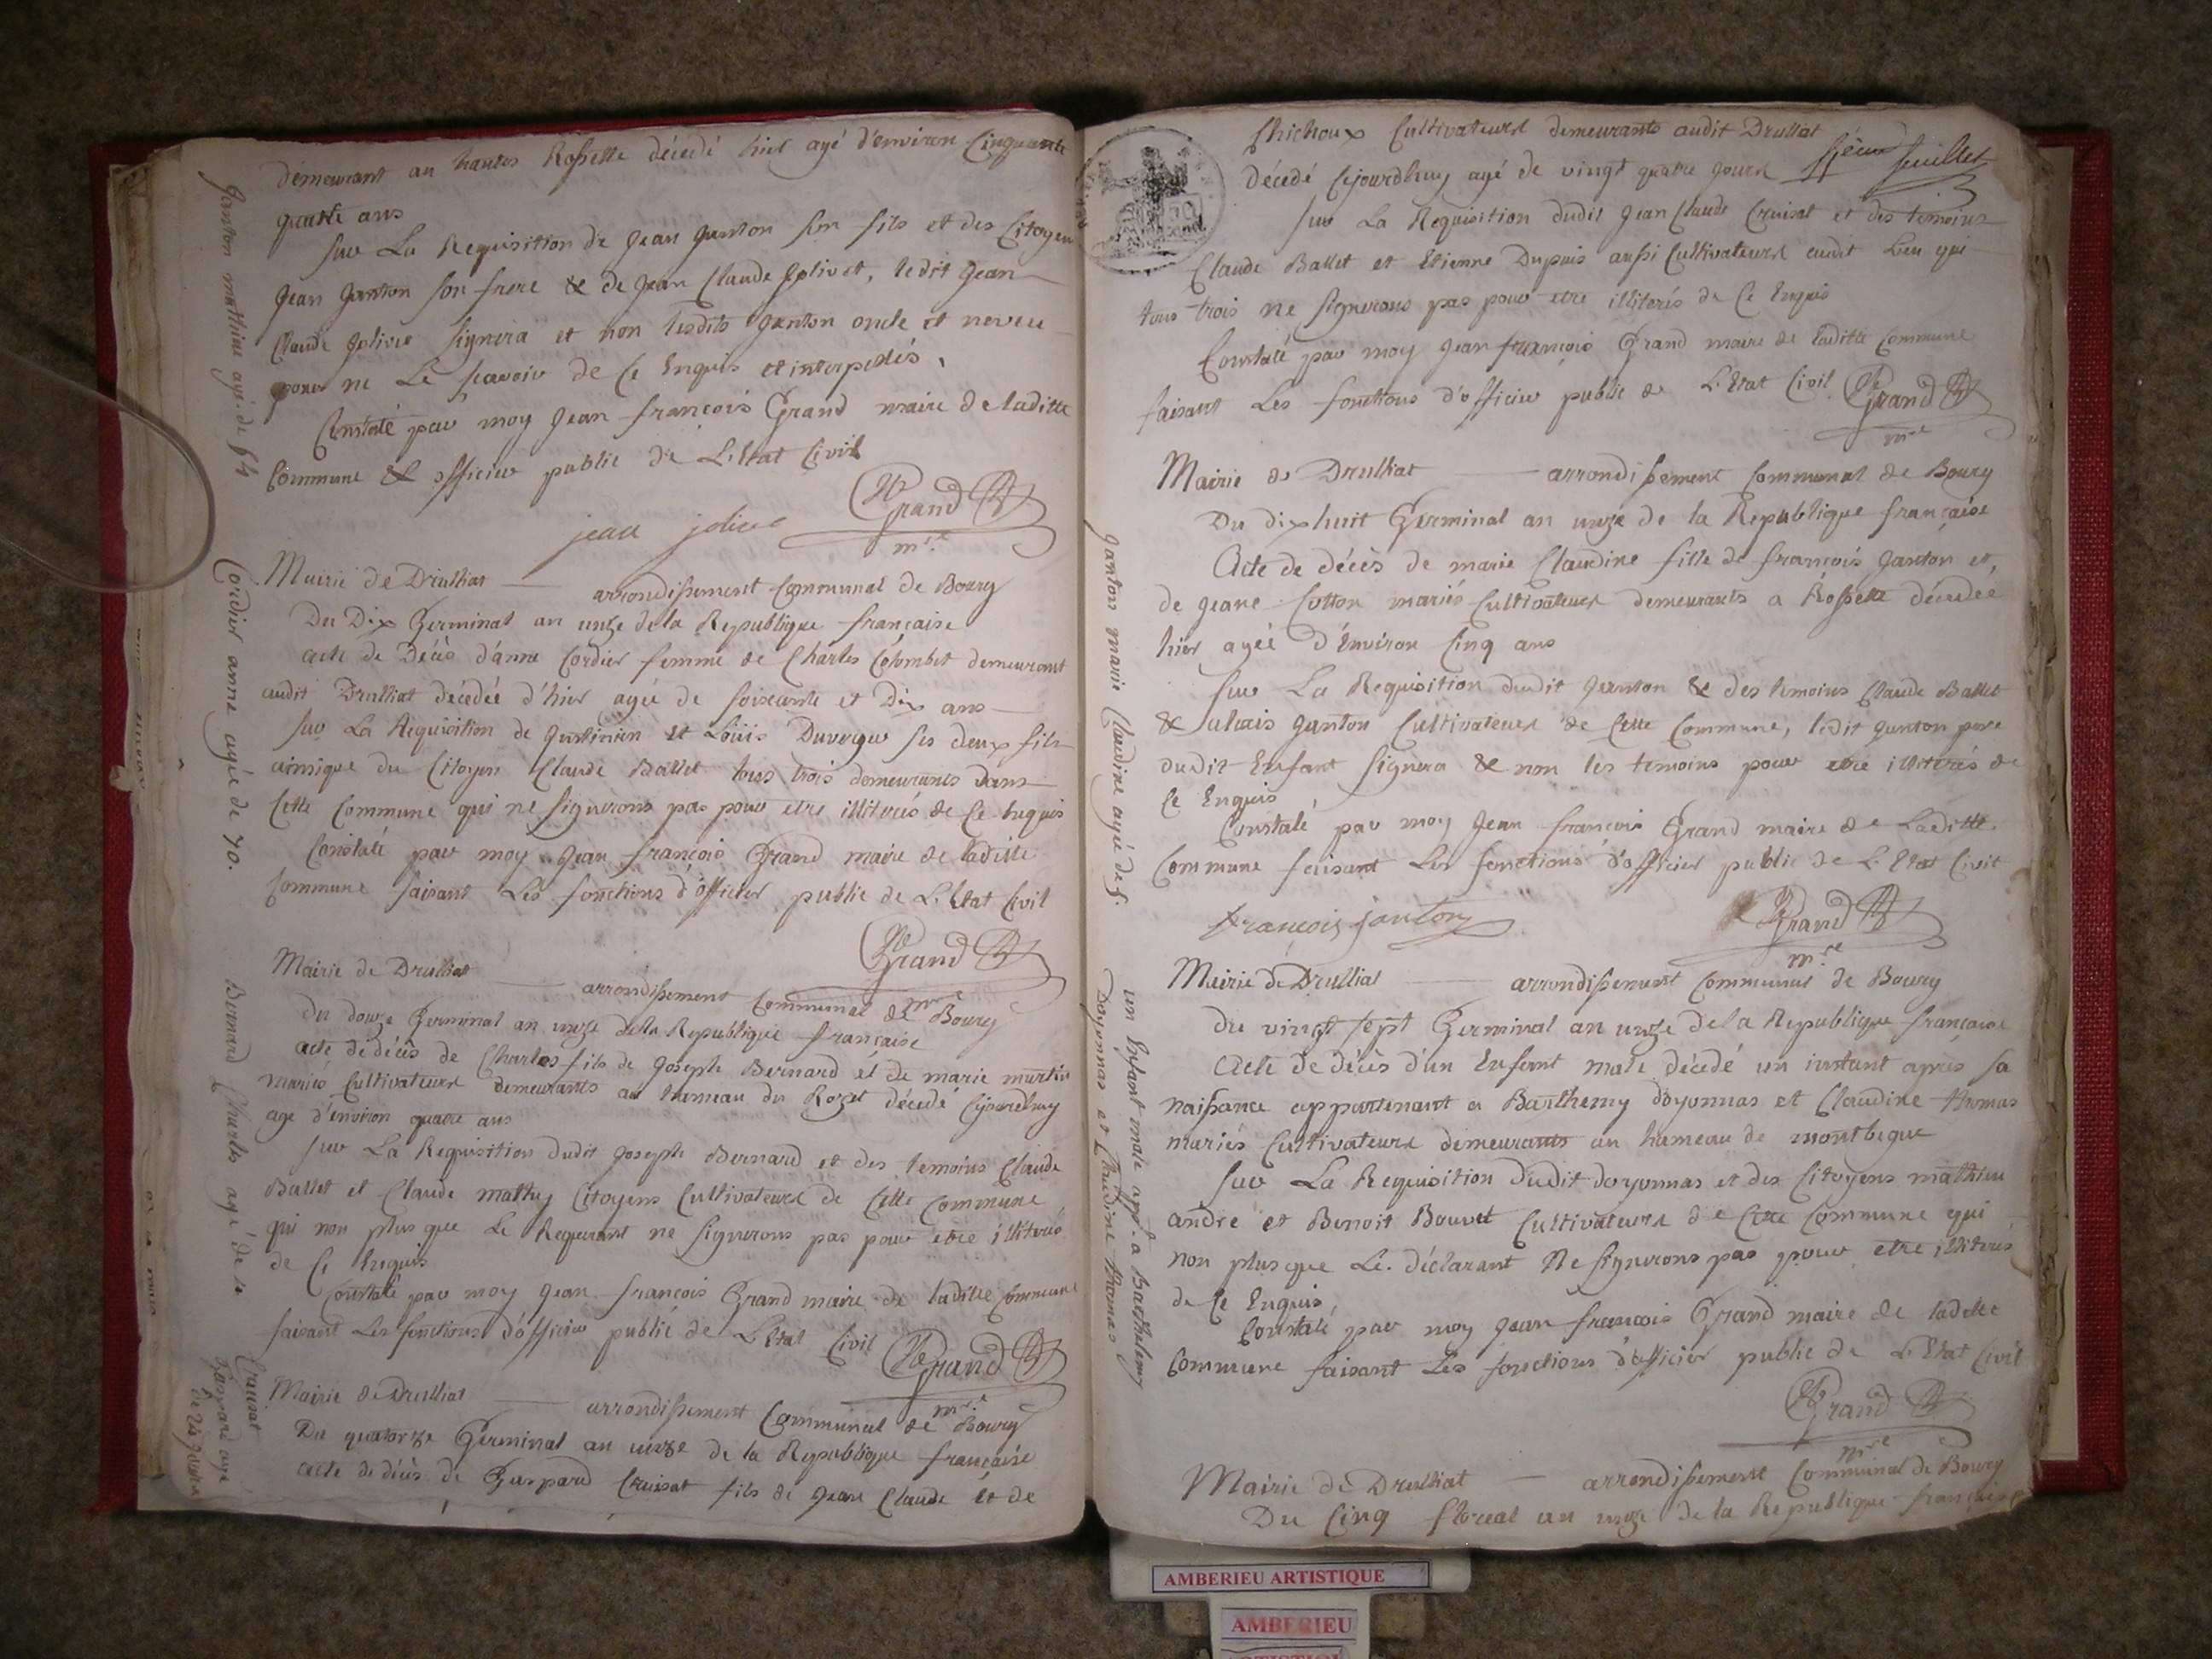 demeurant au hautes Rossette décédé hier agé d'environ Cinquante
quatre ans
sur La Requisition de Jean Janton son fils et des Citoyen
Jean Janton son frere & de Jean Claude Jolivet, ledit Jean
Claude Jolivet signera et non lesdits Janton oncle et neveu
pour ne Le scavoir de Ce Enquis et interpelés,
Constaté par moy Jean françois Grand maire de laditte
Commune & officier public de L'Etat Civil
jean jolivet
Grand
m.re
Janton mathieu agé de 54
Mairie de Drulliat arrondissement Communal de Bourg
Du Dix Germinal an unze de la Republique française
acte de Décès d'anne Cordier femme de Charles Colombet demeurant
audit Drulliat décédée d'hier agée de soixante et Dix ans
sur La Requisition de Justinien et Loüis Duvergier ses deux fils
ainsique du Citoyen Claude Ballet tous trois demeurants dans
Cette Commune qui ne signerons pas pour etre illiterés de Ce Enquis
Constaté par moy Jean françois Grand maire de laditte
Commune faisant Les fonctions d'officier public de L'Etat Civil
Grand
m.re
Cordier anne agée de 70.
Mairie de Drulliat arrondissement Communal de Bourg
du douze Germinal an unze de la Republique française
acte de décès de Charles fils de Joseph Bernard et de marie martin
mariés Cultivateurs demeurants au hameau du Rozet décédé Cejourdhuy
age d'environ quatre ans
sur La Requisition dudit Joseph Bernard et des temoins Claude
Ballet et Claude mathy Citoyens Cultivateurs de Cette Commune
qui non plus que Le Requerant ne signerons pas pour etre illiterés
de Ce Enquis
Constaté par moy Jean françois Grand maire de laditte Commune
faisant Les fonctions d'officier public de L'Etat Civil
Grand
m.re
Bernard Charles agé de 4
Mairie de Drulliat arrondissement Communal de Bourg
Du quatorze Germinal an unze de la Republique française
acte de décès de Gaspard Cruisat fils de Jean Claude et de
Cruisat
Gaspard agé
de 24 jours
Chichoux Cultivateurs demeurants audit Drulliat
décédé Cejourdhuy agé de vingt quatre jours
feuillet
sur La Requisition dudit Jean Claude Cruisat et des temoins
Claude Ballet et Etienne Dupuis aussi Cultivateurs audit Lieu que
tous trois ne signerons pas pour etre illiterés de Ce Enquis
Constaté par moy Jean françois Grand maire de laditte Commune
faisant Les fonctions d'officier public de L'Etat Civil
Grand
m.re
Mairie de Drulliat arrondissement Communal de Bourg
Du dixhuit Germinal an unze de la Republique française
Acte de décès de marie Claudine fille de françois Janton et,
de Jeane Cotton mariés Cultivateurs demeurants a Rossette décédée
hier agée d'Environ Cinq ans
sur La Requisition dudit Janton & des temoins Claude Ballet
& Janton Cultivateurs de Cette Commune, ledit Janton pere
dudit Enfant signera & non les temoins pour etre illiterés de
Ce Enquis
Constaté par moy Jean françois Grand maire de Laditte
Commune faisant Les fonctions d'officier public de L'Etat Civil
françois janton
Grand
m.re
Janton marie Claudine agé de 5.
Mairie de Drulliat arrondissement Communal de Bourg
du vingt sept Germinal an unze de la Republique française
Acte de décès d'un Enfant male décédé un instant après sa
naissance appartenant a Barthemy doyonnas et Claudine thomas
mariés Cultivateurs demeurants au hameau de montbegue
sur La Requisition dudit doyonnas et des Citoyens mathieu
andré et Benoit Bouvet Cultivateurs de Cette Commune qui
non plus que Le déclarant Ne signerons pas pour etre illiterés
de Ce Enquis,
Constaté par moy Jean françois Grand maire de laditte
Commune faisant Les fonctions d'officier public de L'Etat Civil
Grand
m.re
un Enfant male app.t a Barthelemy
Doyonnas et Claudine thomas
Mairie de Drulliat arrondissement Communal de Bourg
Du Cinq floreal an unze de la Republique française
AMBERIEU ARTISTIQUE
AMBERIEU
ARTISTIQUE